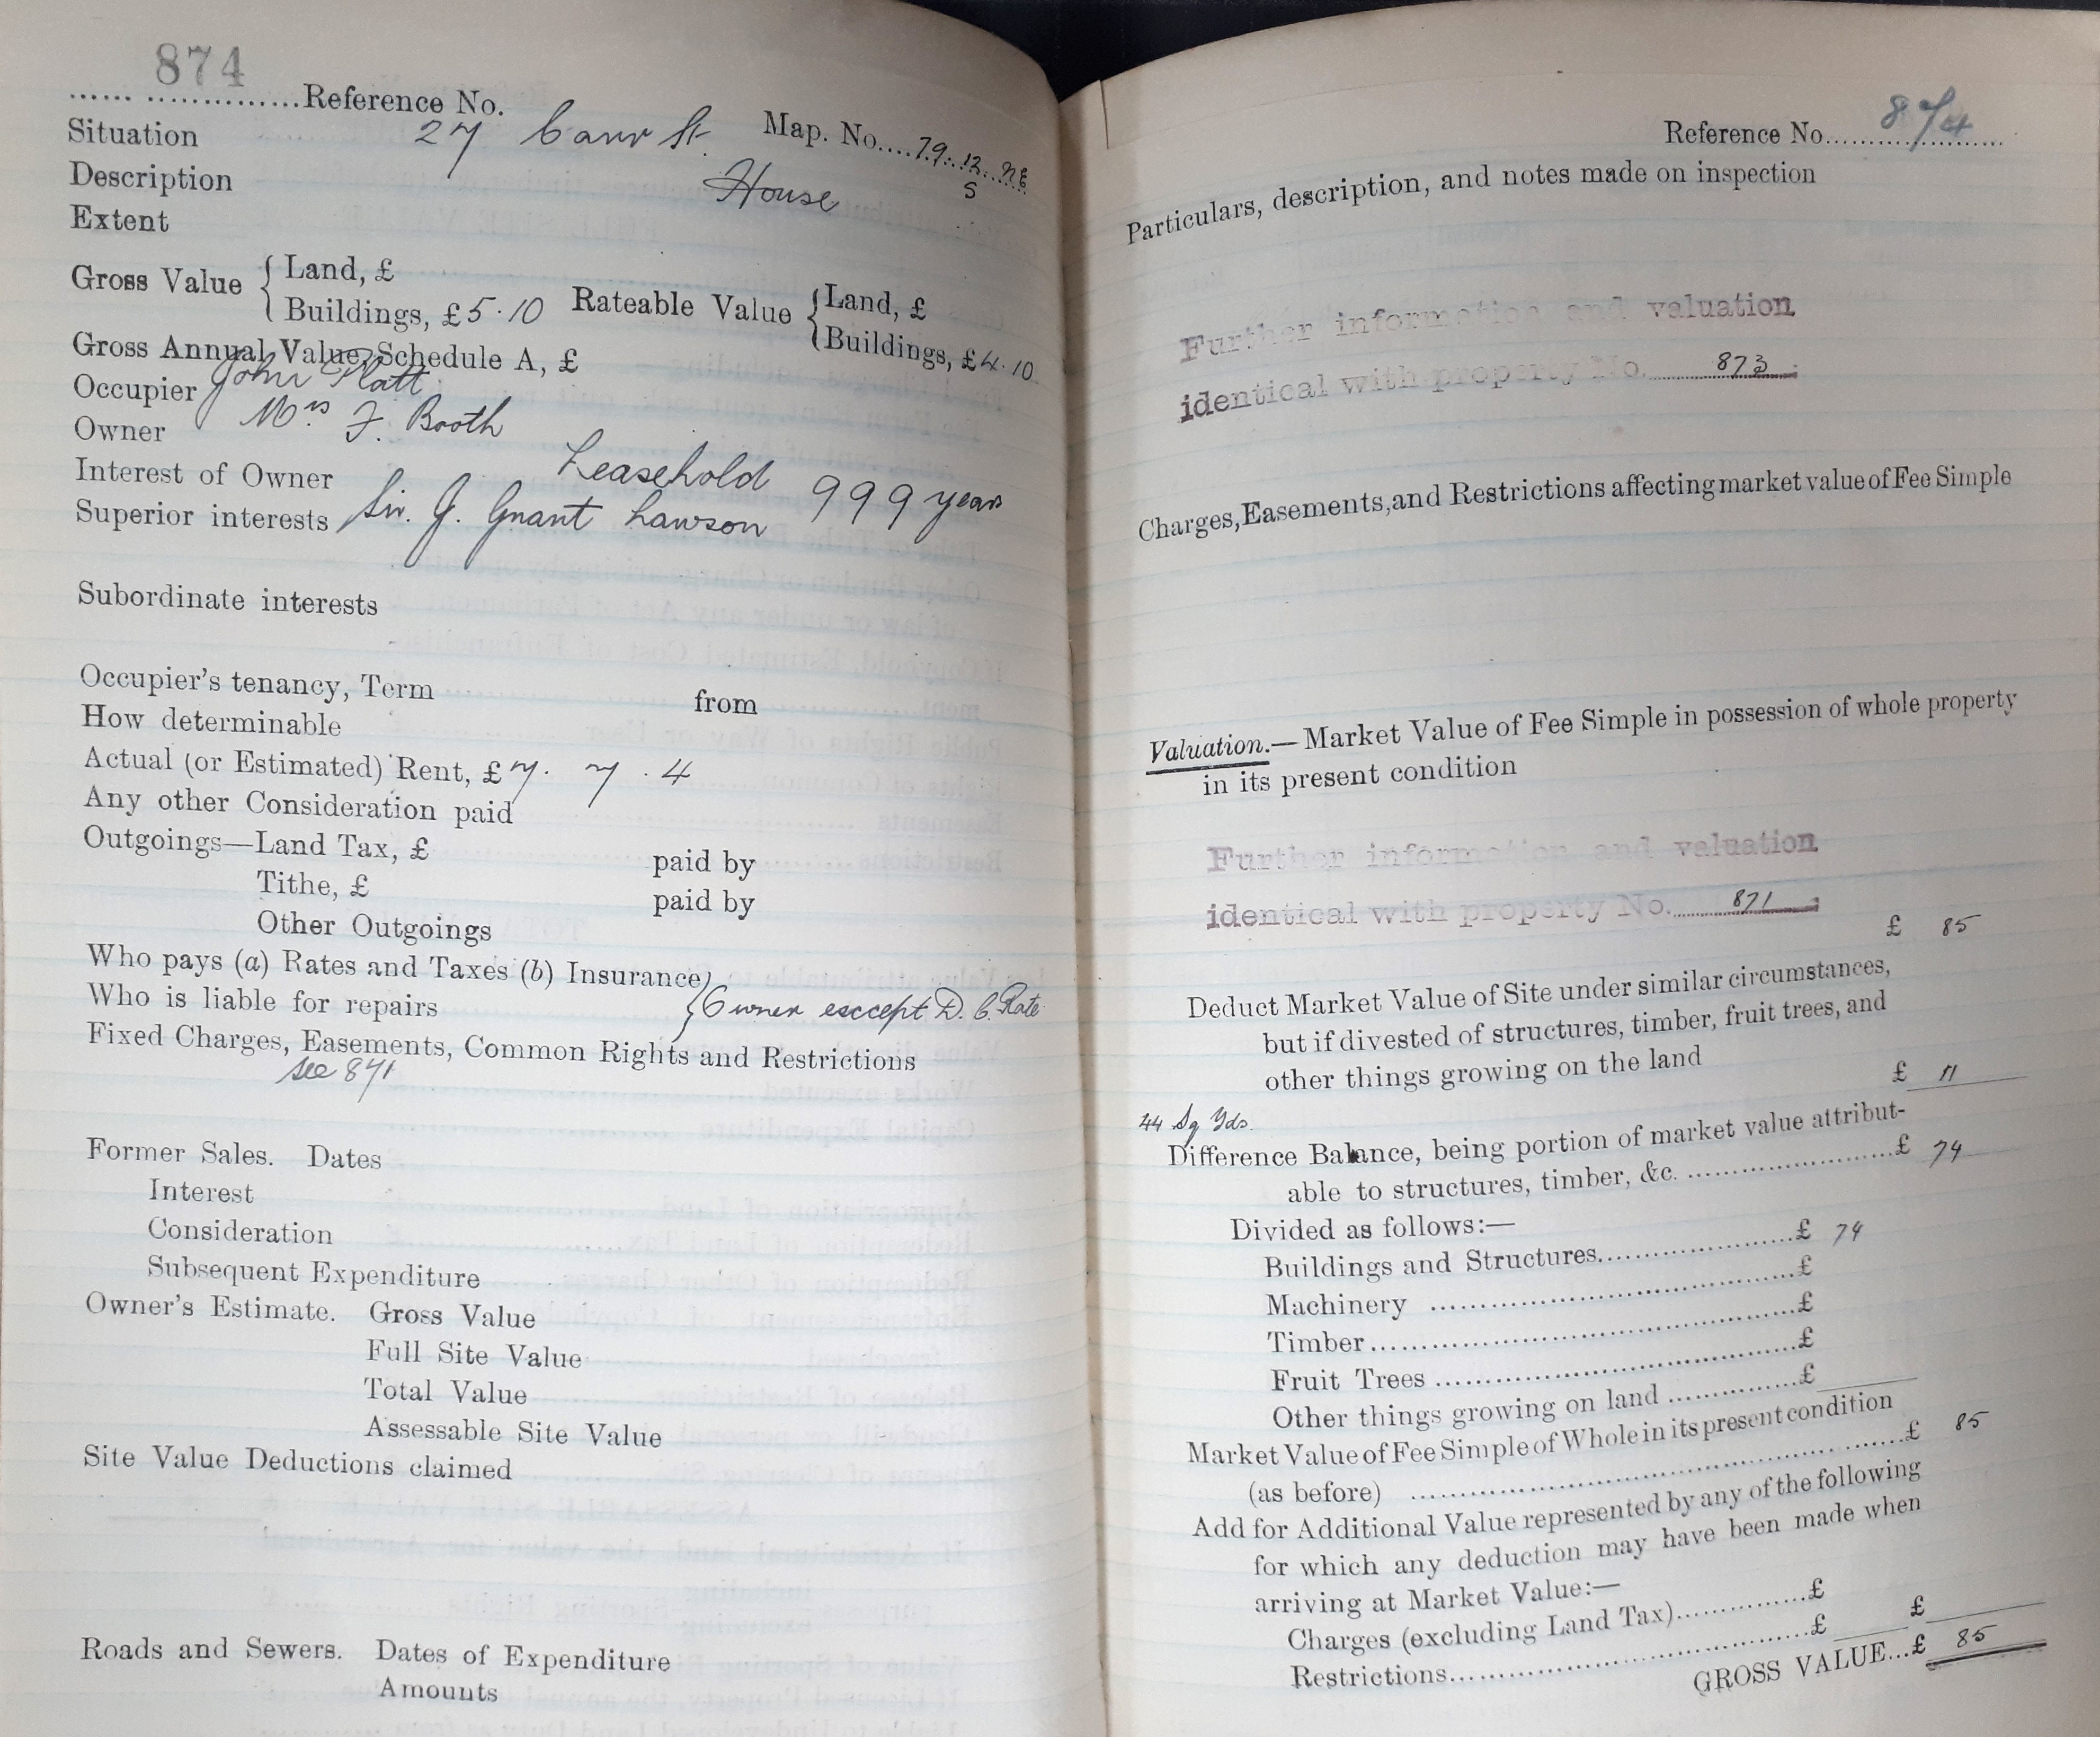 874
...... ...............Reference No.
Situation 27 Carr St. Map. No....79..12..NE
S
Description House
Extent
Gross Value { Land, £
Buildings, £5.10 Rateable Value { Land, £
Buildings, £4.10
Gross Annual Value, Schedule A, £
Occupier John Platt
Owner Mrs F. Booth
Interest of Owner Leasehold 999 years
Superior interests Sir. J. Grant Lawson
Subordinate interests
Occupier's tenancy, Term from
How determinable
Actual (or Estimated) Rent, £7. 7 .4
Any other Consideration paid
Outgoings—Land Tax, £ paid by
Tithe, £ paid by
Other Outgoings
Who pays (a) Rates and Taxes (b) Insurance
Who is liable for repairs } Owner esccept D. C. Rate
Fixed Charges, Easements, Common Rights and Restrictions
see 871
Former Sales. Dates
Interest
Consideration
Subsequent Expenditure
Owner's Estimate. Gross Value
Full Site Value
Total Value
Assessable Site Value
Site Value Deductions claimed
Roads and Sewers. Dates of Expenditure
Amounts
Reference No. 874
Particulars, description, and notes made on inspection
Further information and valuation
identical with property No. 873
Charges, Easements, and Restrictions affecting market value of Fee Simple
Valuation.—Market Value of Fee Simple in possession of whole property
in its present condition
Further information and valuation
identical with property No. 871
£ 85
Deduct Market Value of Site under similar circumstances,
but if divested of structures, timber, fruit trees, and
other things growing on the land £ 11
44 Sq Yds.
Difference Balance, being portion of market value attribut-
able to structures, timber, &c. ........................£ 74
Divided as follows:—
Buildings and Structures.....................£ 74
Machinery ........................................£
Timber..............................................£
Fruit Trees .......................................£
Other things growing on land ..............£
Market Value of Fee Simple of Whole in its present condition
(as before) ..................................................£ 85
Add for Additional Value represented by any of the following
for which any deduction may have been made when
arriving at Market Value:—
Charges (excluding Land Tax)...............£
Restrictions.......................................£ £
GROSS VALUE...£ 85